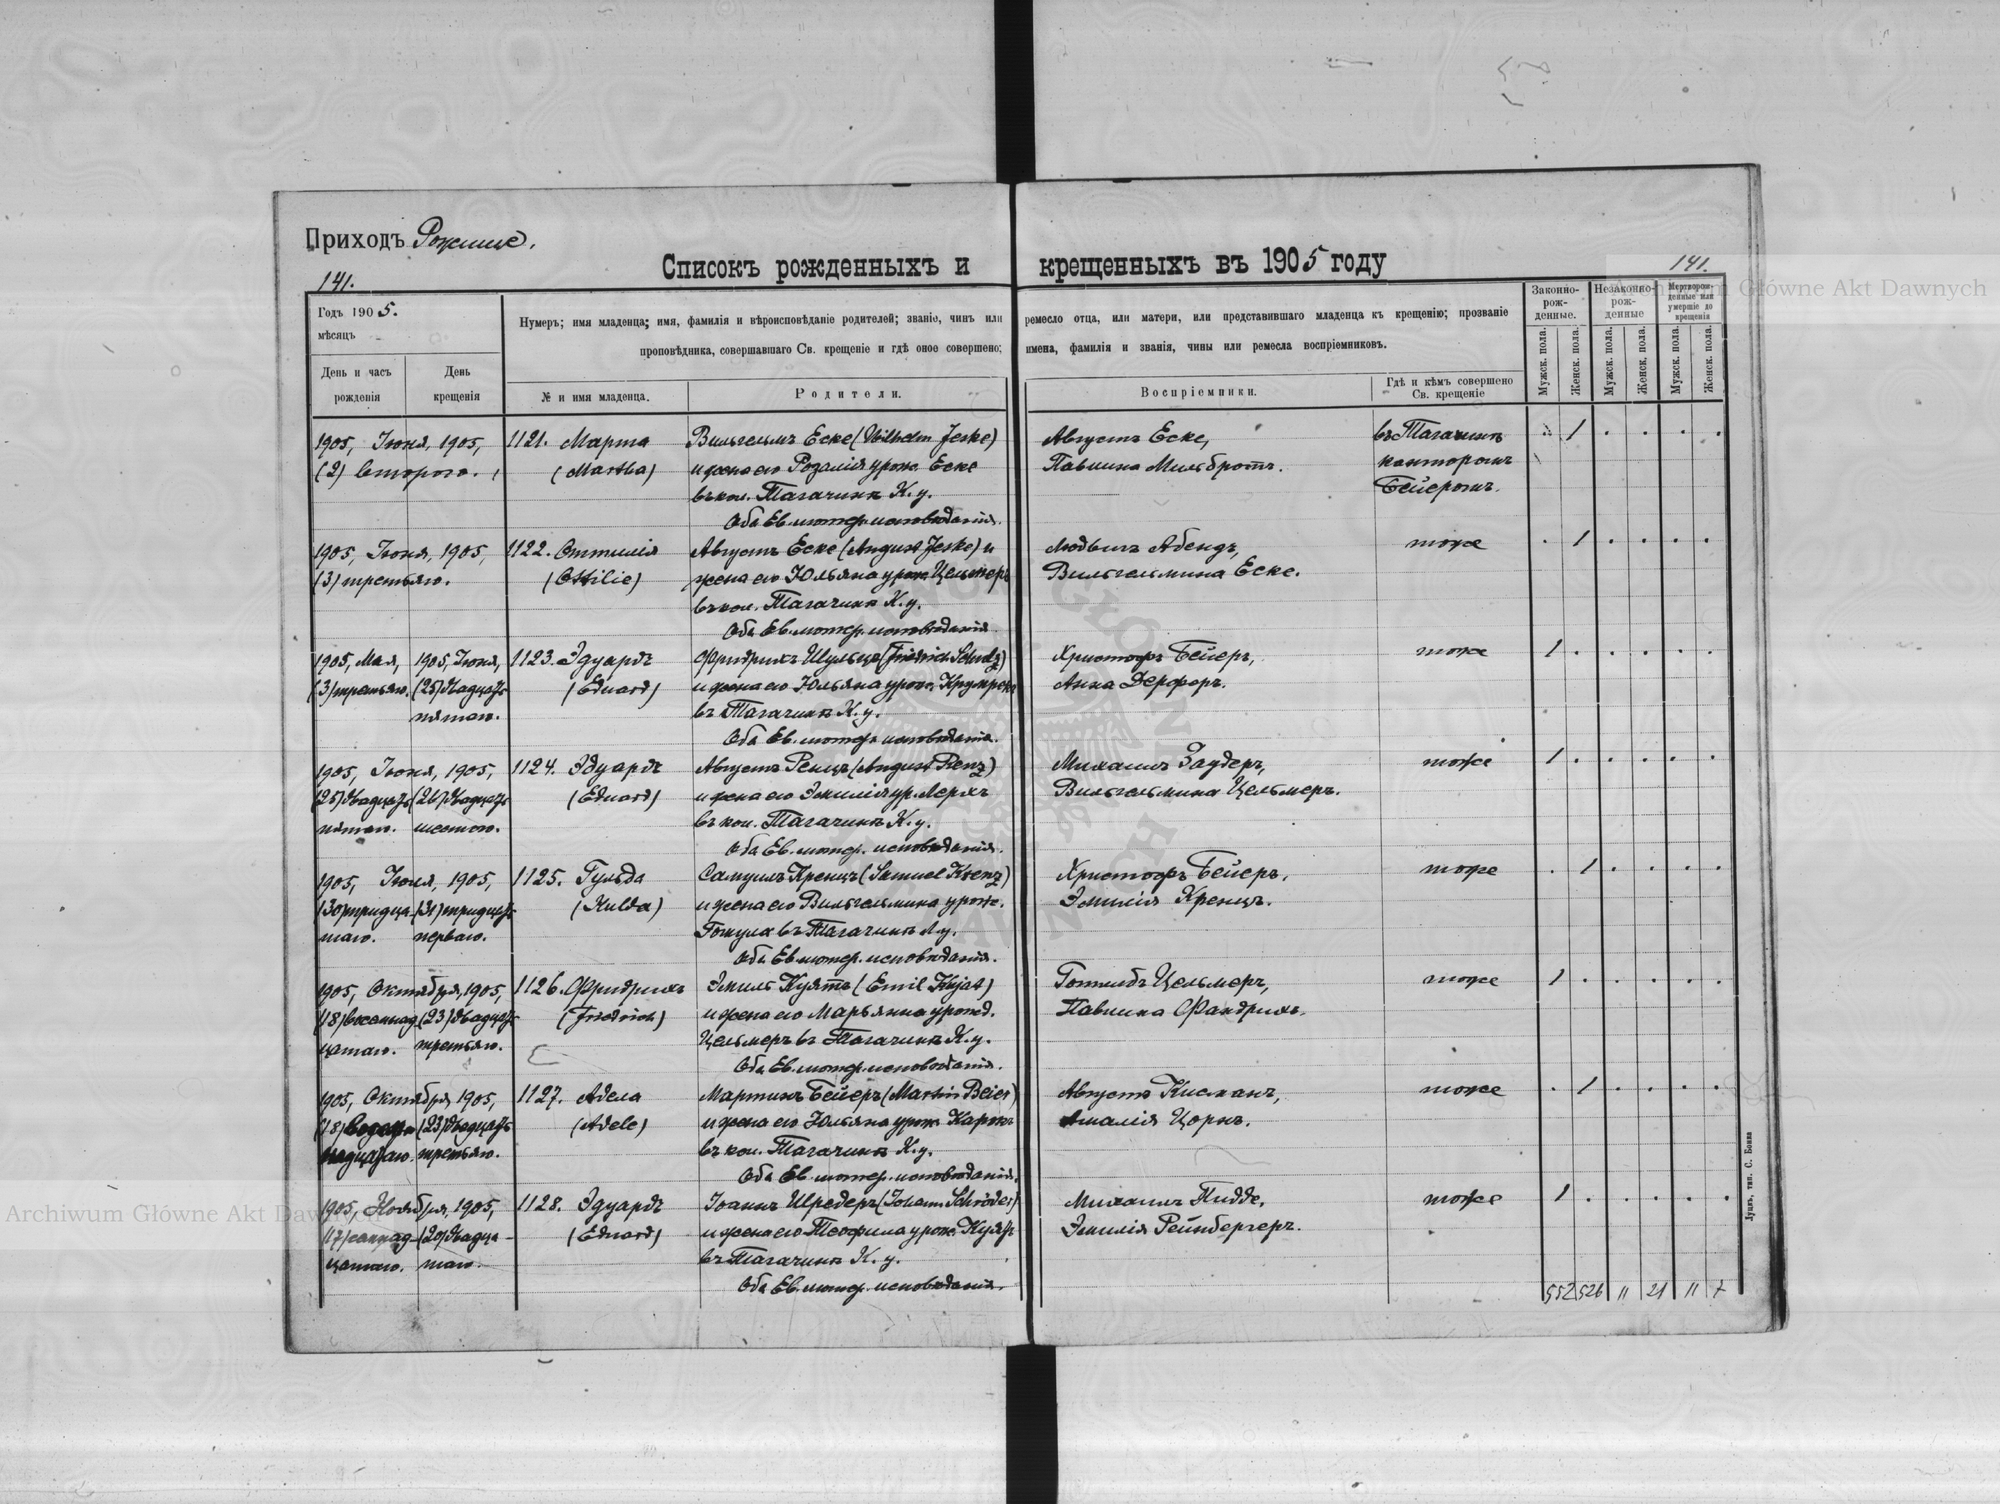 Приходъ Рожище.
141.
Списокъ рожденныхъ и крещенныхъ въ 1905 году
141.
Годъ 1905.
мѣсяцъ
День и часъ рожденія
День крещенія
Нумеръ; имя младенца; имя, фамилія и вѣроисповѣданіе родителей; званіе, чинъ или ремесло отца, или матери, или представившаго младенца къ крещенію; прозваніе
проповѣдника, совершавшаго Св. крещеніе и гдѣ оное совершено; имена, фамилія и званія, чины или ремесла воспріемниковъ.
№ и имя младенца.
Родители.
Воспріемники.
Гдѣ и кѣмъ совершено Св. крещеніе
Законно-рож-денные.
Незаконно-рож-денные
Мертворож-денные или умершіе до крещенія
Мужск. пола.
Женск. пола.
Мужск. пола.
Женск. пола.
Мужск. пола.
Женск. пола.
1905, Іюня, 1905, 1121. Марта Вильгельмъ Еске (Wilhelm Jeske) Августъ Еске, въ Тагачинѣ 1
(2) второго. (Martha) и жена его Розалія урож. Еске Павлина Мильбротъ. канторомъ
въ кол. Тагачинѣ К. у. Бейеромъ.
Оба Ев. лютер. исповѣданія.
1905, Іюня, 1905, 1122. Оттилія Августъ Еске (August Jeske) и Людвигъ Абендъ, тоже 1
(3) третьяго. (Ottilie) жена его Юльяна урож. Цельмеръ Вильгельмина Еске.
въ кол. Тагачинѣ К. у.
Оба Ев. лютер. исповѣданія
1905, Мая, 1905, Іюня, 1123. Эдуардъ Фридрихъ Шульцъ (Friedrich Schulz) Христофъ Бейеръ, тоже 1
(3) третьяго. (25) двадцать (Eduard) и жена его Юльяна урож. Анна Дерфоръ.
пятаго. въ Тагачинѣ К. у.
Оба Ев. лютер. исповѣданія.
1905, Іюня, 1905, 1124. Эдуардъ Августъ Ренцъ (August Renz) Михаилъ Заудеръ, тоже 1
(25) двадцать (26) двадцать (Eduard) и жена его Эмилія ур. Лерхъ Вильгельмина Цельмеръ.
пятаго. шестого. въ кол. Тагачинѣ К. у.
Оба Ев. лютер. исповѣданія.
1905, Іюня, 1905, 1125. Гульда Самуилъ Кренцъ (Samuel Krenz) Христофъ Бейеръ, тоже 1
(30) тридца- (31) тридцать (Hulda) и жена его Вильгельмина урож. Эмилія Кренцъ.
таго. перваго. въ Тагачинѣ Л. у.
Оба Ев. лютер. исповѣданія.
1905, Октября, 1905, 1126. Фридрихъ Эмиль Куятъ (Emil Kujat) Готлибъ Цельмеръ, тоже 1
(18) восемнад- (23) двадцать (Friedrich) и жена его Марьянна урожд. Павлина Фандрихъ.
цатаго. третьяго. Цельмеръ въ Тагачинѣ К. у.
Оба Ев. лютер. исповѣданія.
1905, Октября 1905, 1127. Адела Мартинъ Бейеръ (Martin Beier) Августъ Кисманъ, тоже 1
(18) (23) двадцать (Adele) и жена его Юльяна урож. Амалія Цорнъ.
третьяго. въ кол. Тагачинѣ К. у.
Оба Ев. лютер. исповѣданія.
1905, Ноября, 1905, 1128. Эдуардъ Іоаннъ Шредеръ (Johann Schröder) Михаилъ Тидде, тоже 1
(17) семнад- (20) двадца- (Eduard) и жена его Теофила урож. Куятъ Эмилія Рейнбергеръ.
цатаго. таго. въ Тагачинѣ К. у.
Оба Ев. лютер. исповѣданія.
552 526 11 21 11 7
Луцкъ, тип. С. Бонка
Archiwum Główne Akt Dawnych
Archiwum Główne Akt Dawnych